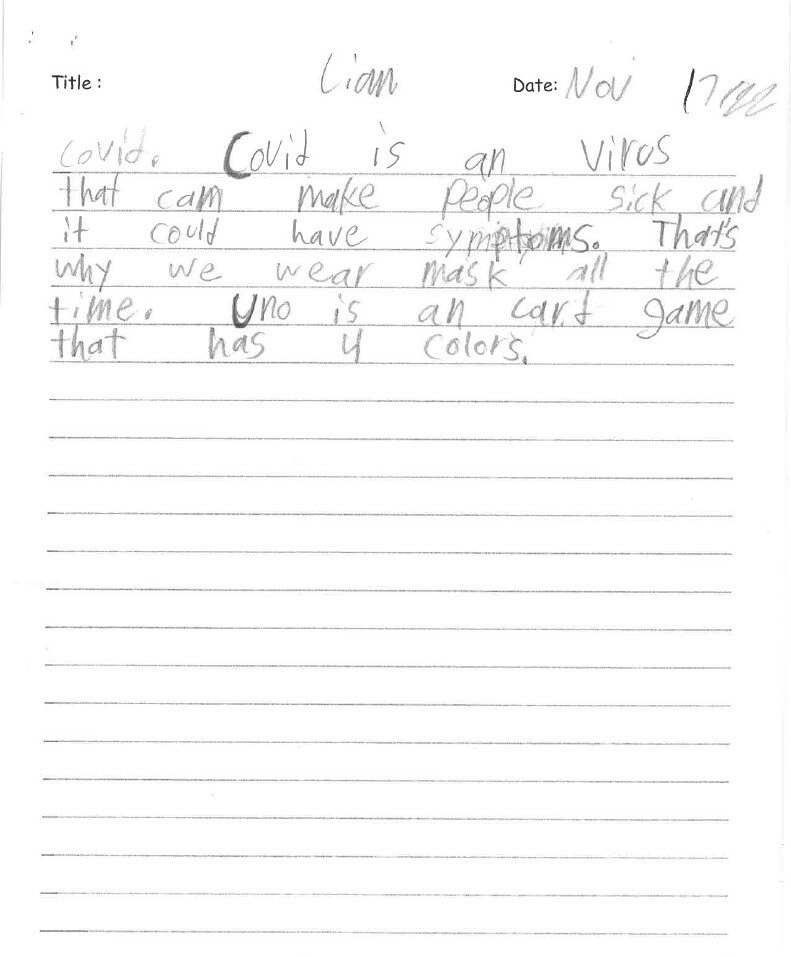 Title : Lian Date: Nov 17
covid. Covid is an virus
that cam make people sick and
it could have symptoms. That's
why we wear mask all the
time. Uno is an card game
that has 4 colors.